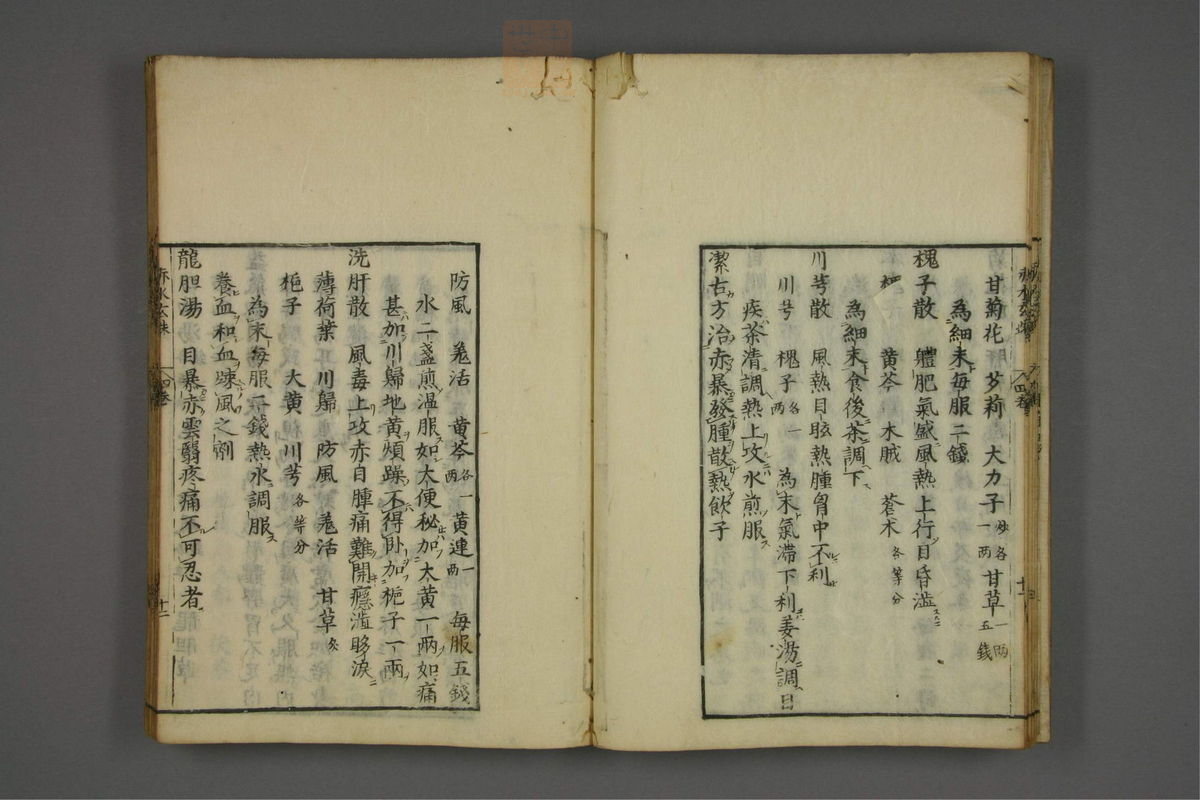 甘菊花 牛莉 大力子炒各一兩 甘草一兩五錢
為細末每服二錢
槐子散 體肥氣盛風熱上行目昏澁
槐子 黄芩 木賊 蒼朮各等分
為細末食後茶調下
川芎散 風熱目眩熱腫胷中不利
川芎 槐子各一兩 為末氣滯下利姜湯調目
疾茶清調熱上攻水煎服
潔古方治赤暴發腫散熱飲子
防風 羗活 黄芩各一兩 黄連一兩 每服五錢
水二盞煎温服如大便秘加大黄一兩如痛
甚加川歸地黄煩躁不得卧加梔子一兩
洗肝散 風毒上攻赤目腫痛難開癮澁眵淚
薄荷葉 川歸 防風 羗活 甘草炙
梔子 大黄 川芎各等分
為末每服二錢熱水調服
養血和血疎風之劑
龍胆湯 目暴赤雲翳疼痛不可忍者
赤水玄珠 四卷 十二